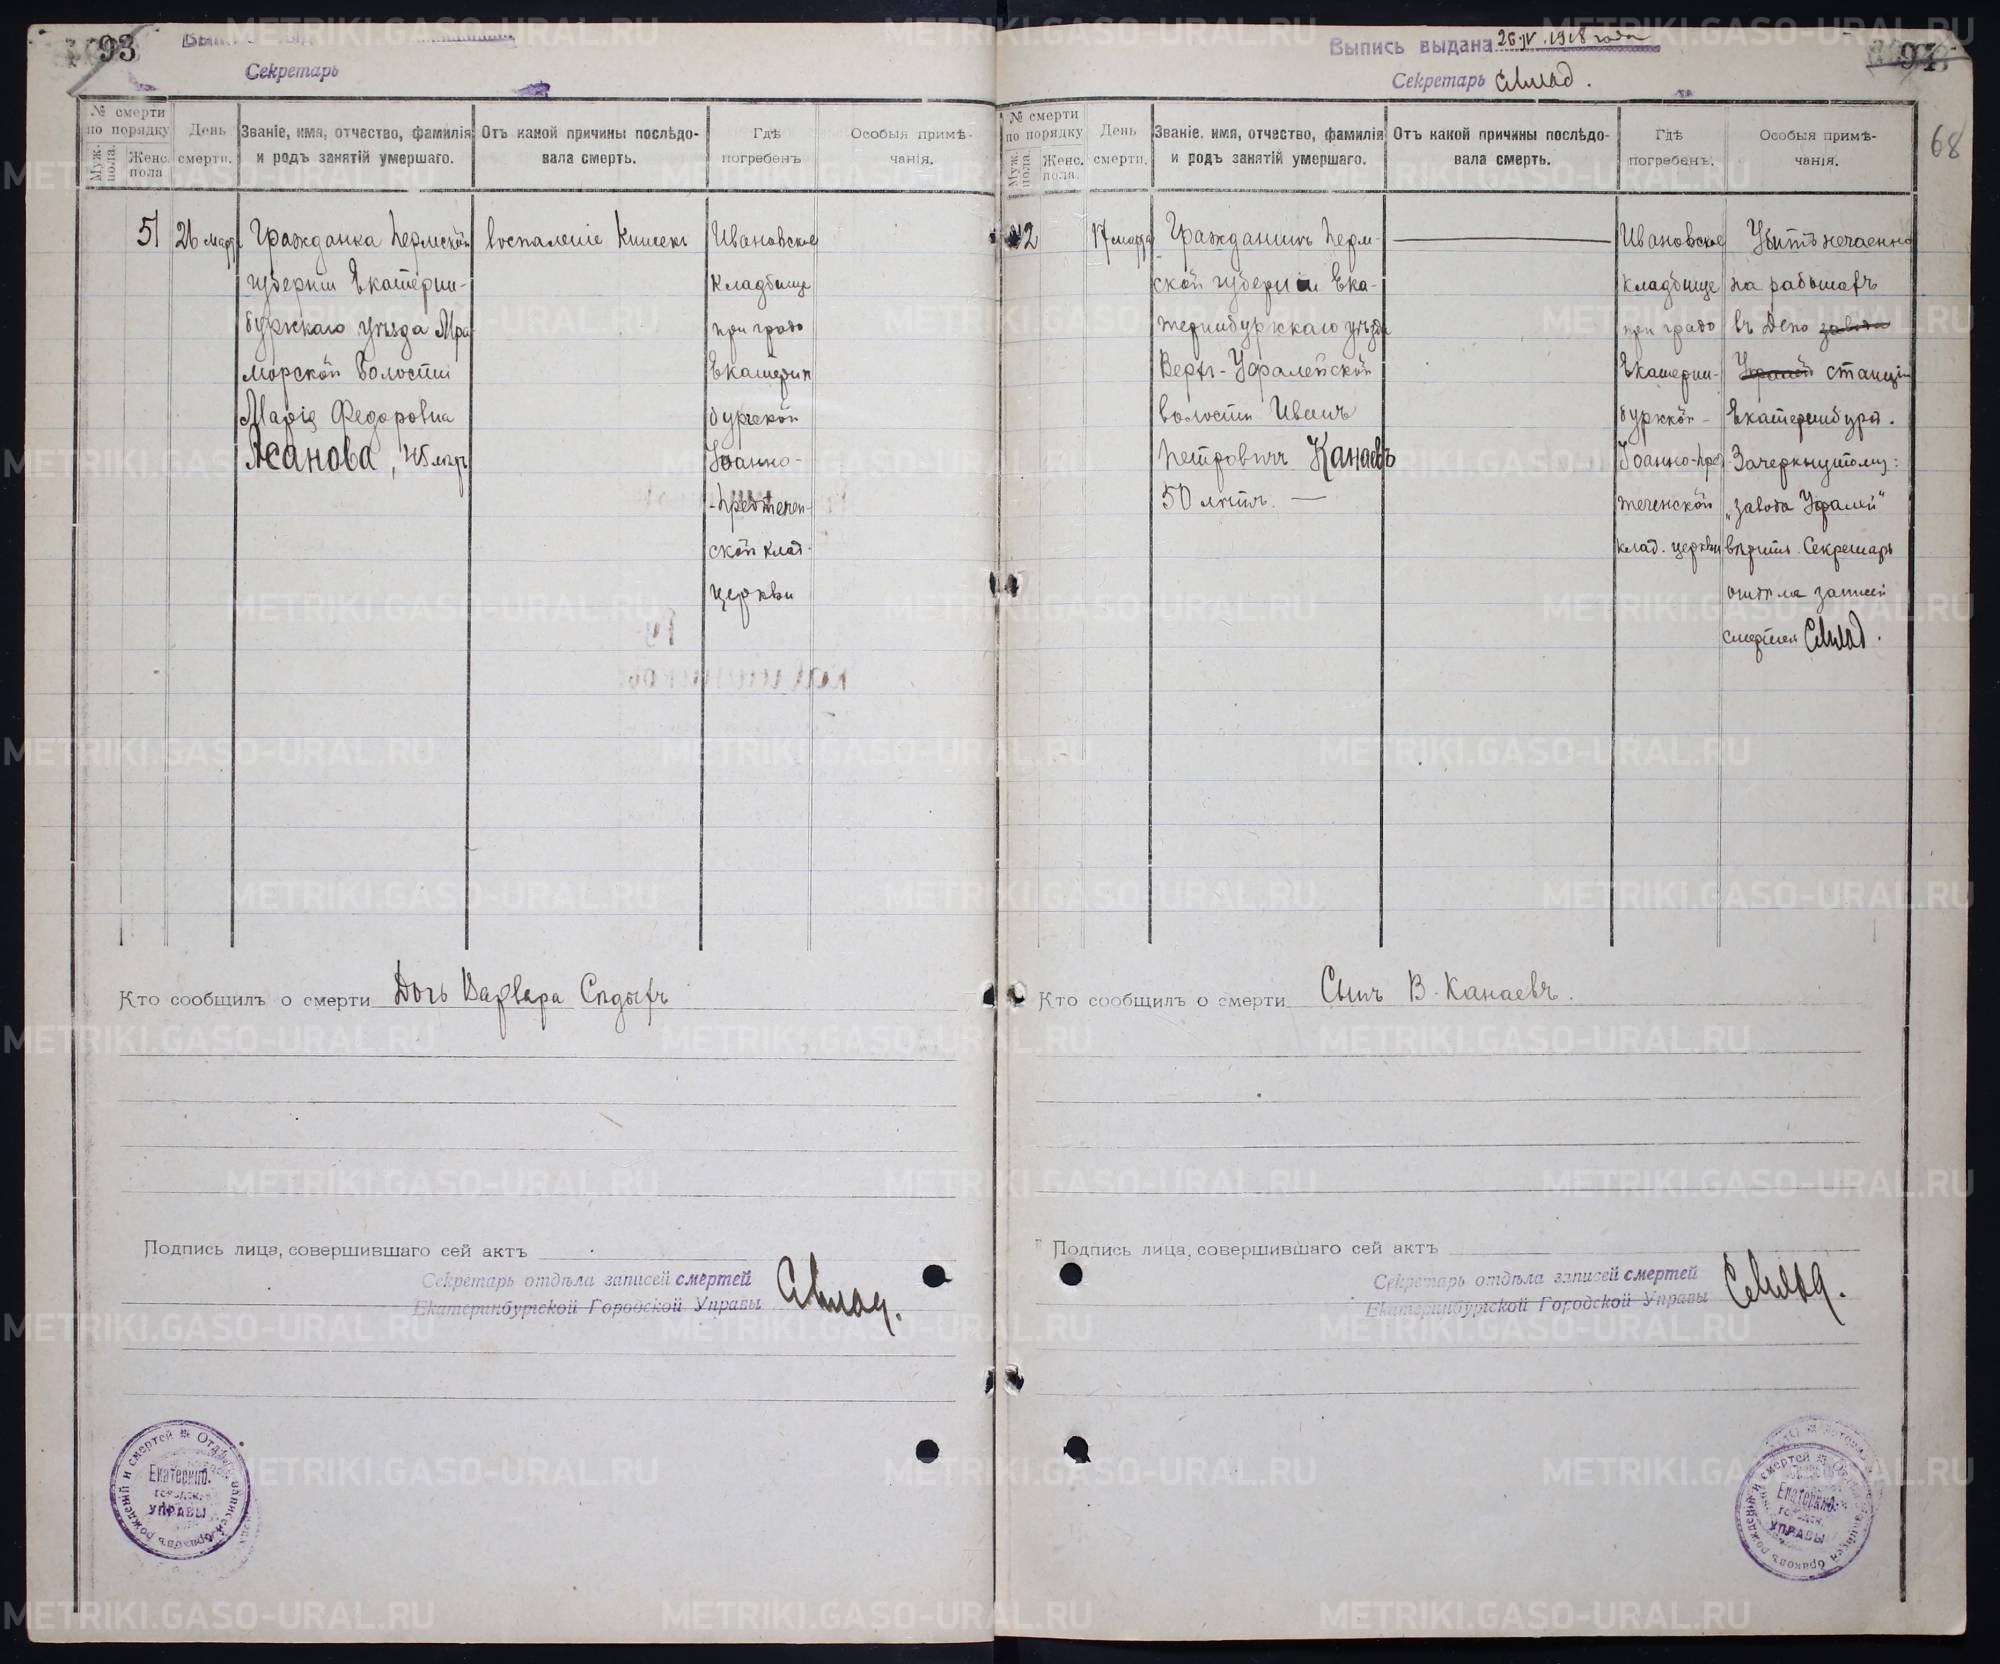 93
Секретарь
№ смерти по порядку
Муж. пола.
Женс. пола
День смерти.
Званіе, имя, отчество, фамилія и родъ занятій умершаго.
Отъ какой причины послѣдовала смерть.
Гдѣ погребенъ
Особыя примѣчанія.
51
26 марта
Гражданка Пермской
губерніи Екатерин-
бургскаго уѣзда Мра
морской волости
Марія Федоровна
Асанова, 45 лѣтъ
воспаленіе Кишекъ
Ивановское
кладбище
при градо
Екатерин
бургской
Іоанно-
-Предтечен-
ской клад-
церкви
Кто сообщилъ о смерти Дочь Варвара
Подпись лица, совершившаго сей актъ
Секретарь отдѣла записей смертей
Екатеринбургской Городской Управы
Екатеринб.
городск.
УПРАВЫ
94
68
Выпись выдана 26 IV. 1918 года
Секретарь
№ смерти по порядку
Муж. пола.
Женс. пола.
День смерти.
Званіе, имя, отчество, фамилія и родъ занятій умершаго.
Отъ какой причины послѣдовала смерть.
Гдѣ погребенъ.
Особыя примѣчанія.
42
17 марта
Гражданинъ Перм-
ской губерніи Ека-
теринбургскаго уѣзда
Верхъ-Уфалейской
волости Иванъ
Петровичъ Канаевъ
50 лѣтъ. —
Ивановское
кладбище
при градо
Екатерин-
бургской-
Іоанно-Пред-
теченской
клад. церкви
Убитъ нечаенно
на работахъ
въ Депо завода
Уфалей станціи
Екатеринбург.
Зачеркнутому:
„завода Уфалей“
вѣрить. Секретарь
отдѣла записей
смертей
Кто сообщилъ о смерти Сынъ В. Канаевъ.
Подпись лица, совершившаго сей актъ
Секретарь отдѣла записей смертей
Екатеринбургской Городской Управы
Екатеринб.
городск.
УПРАВЫ
METRIKI.GASO-URAL.RU